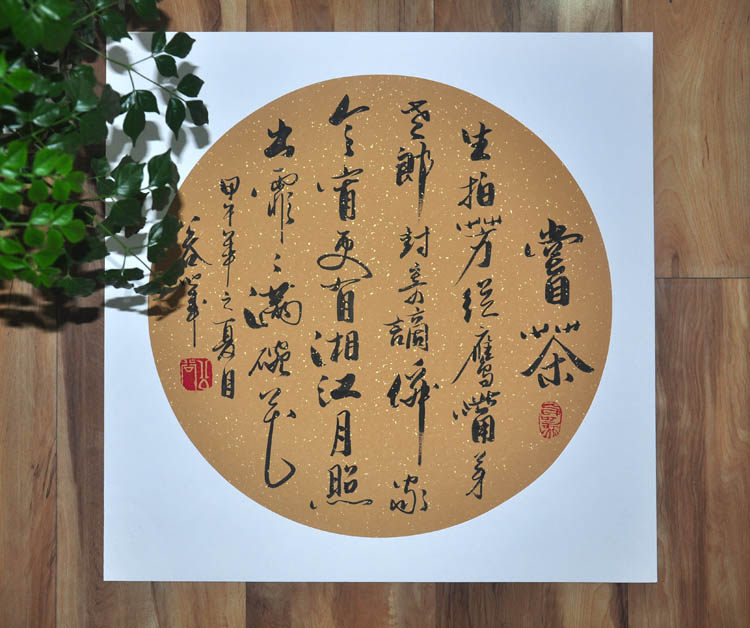 嘗茶
生拍芳從鷹嘴芽
老郎封寄謫僊家
今宵更有湘江月照
出霏々滿碗花
甲午年之夏月